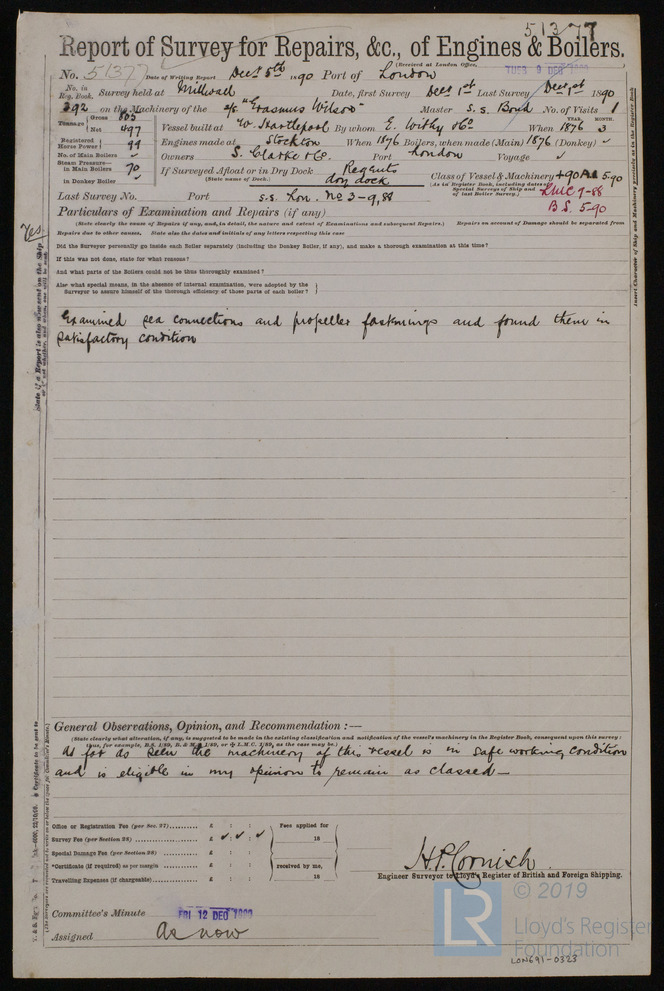 51377
Report of Survey for Repairs, &c., of Engines & Boilers.
(Received at London Office,
TUES 9 DEC 1890
No. 51377 Date of Writing Report Decr 8th 1890 Port of London
No. in Reg. Book. Survey held at Millwall Date, first Survey Decr 1st Last Survey Decr 1st 1890
392 on the Machinery of the s/s "Erasmus Wilson" Master S. S. Bond No. of Visits 1
Tonnage Gross 803 Net 497
Vessel built at W. Hartlepool By whom E. Withy & Co. When 1876 YEAR. MONTH. 3
Registered Horse Power 99 Engines made at Stockton When 1876 Boilers, when made (Main) 1876 (Donkey) ✓
No. of Main Boilers ✓ Owners S. Clarke & Co. Port London Voyage ✓
Steam Pressure— in Main Boilers 70 If Surveyed Afloat or in Dry Dock Regents dry dock
(State name of Dock.)
in Donkey Boiler ✓
Class of Vessel & Machinery +90A1 5-90
(As in Register Book, including dates of Special Surveys of Ship and of last Boiler Survey.) LMC 9-88
B.S. 5-90
Last Survey No. Port s.s. Lon. No 3-9,88
Particulars of Examination and Repairs (if any)
(State clearly the cause of Repairs if any, and, in detail, the nature and extent of Examinations and subsequent Repairs.) Repairs on account of Damage should be separated from
Repairs due to other causes. State also the dates and initials of any letters respecting this case
Did the Surveyor personally go inside each Boiler separately (including the Donkey Boiler, if any), and make a thorough examination at this time?
If this was not done, state for what reasons?
And what parts of the Boilers could not be thus thoroughly examined?
Also what special means, in the absence of internal examination, were adopted by the
Surveyor to assure himself of the thorough efficiency of those parts of each boiler?
Yes.
State if a Report is also now sent on the Ship
Examined sea connections and propeller fastenings and found them in
satisfactory condition
General Observations, Opinion, and Recommendation :—
(State clearly what alteration, if any, is suggested to be made in the existing classification and notification of the vessel's machinery in the Register Book, consequent upon this survey:
thus, for example, B.S. 1/89, B. & M.S. 1/89, or L.M.C. 1/89, as the case may be.)
As far as seen the machinery of this vessel is in safe working condition
and is eligible in my opinion to remain as classed—
Office or Registration Fee (per Sec. 27) £ : : Fees applied for
Survey Fee (per Section 28) £ ✓ : ✓ : ✓ 18
Special Damage Fee (per Section 28) £ : :
*Certificate (if required) as per margin £ : : received by me,
Travelling Expenses (if chargeable) £ : : 18
H.P. Cornish
Engineer Surveyor to Lloyd's Register of British and Foreign Shipping.
Committee's Minute FRI 12 DEC 1890
Assigned As now
© 2019
LR
Lloyd's Register
Foundation
LON691-0323